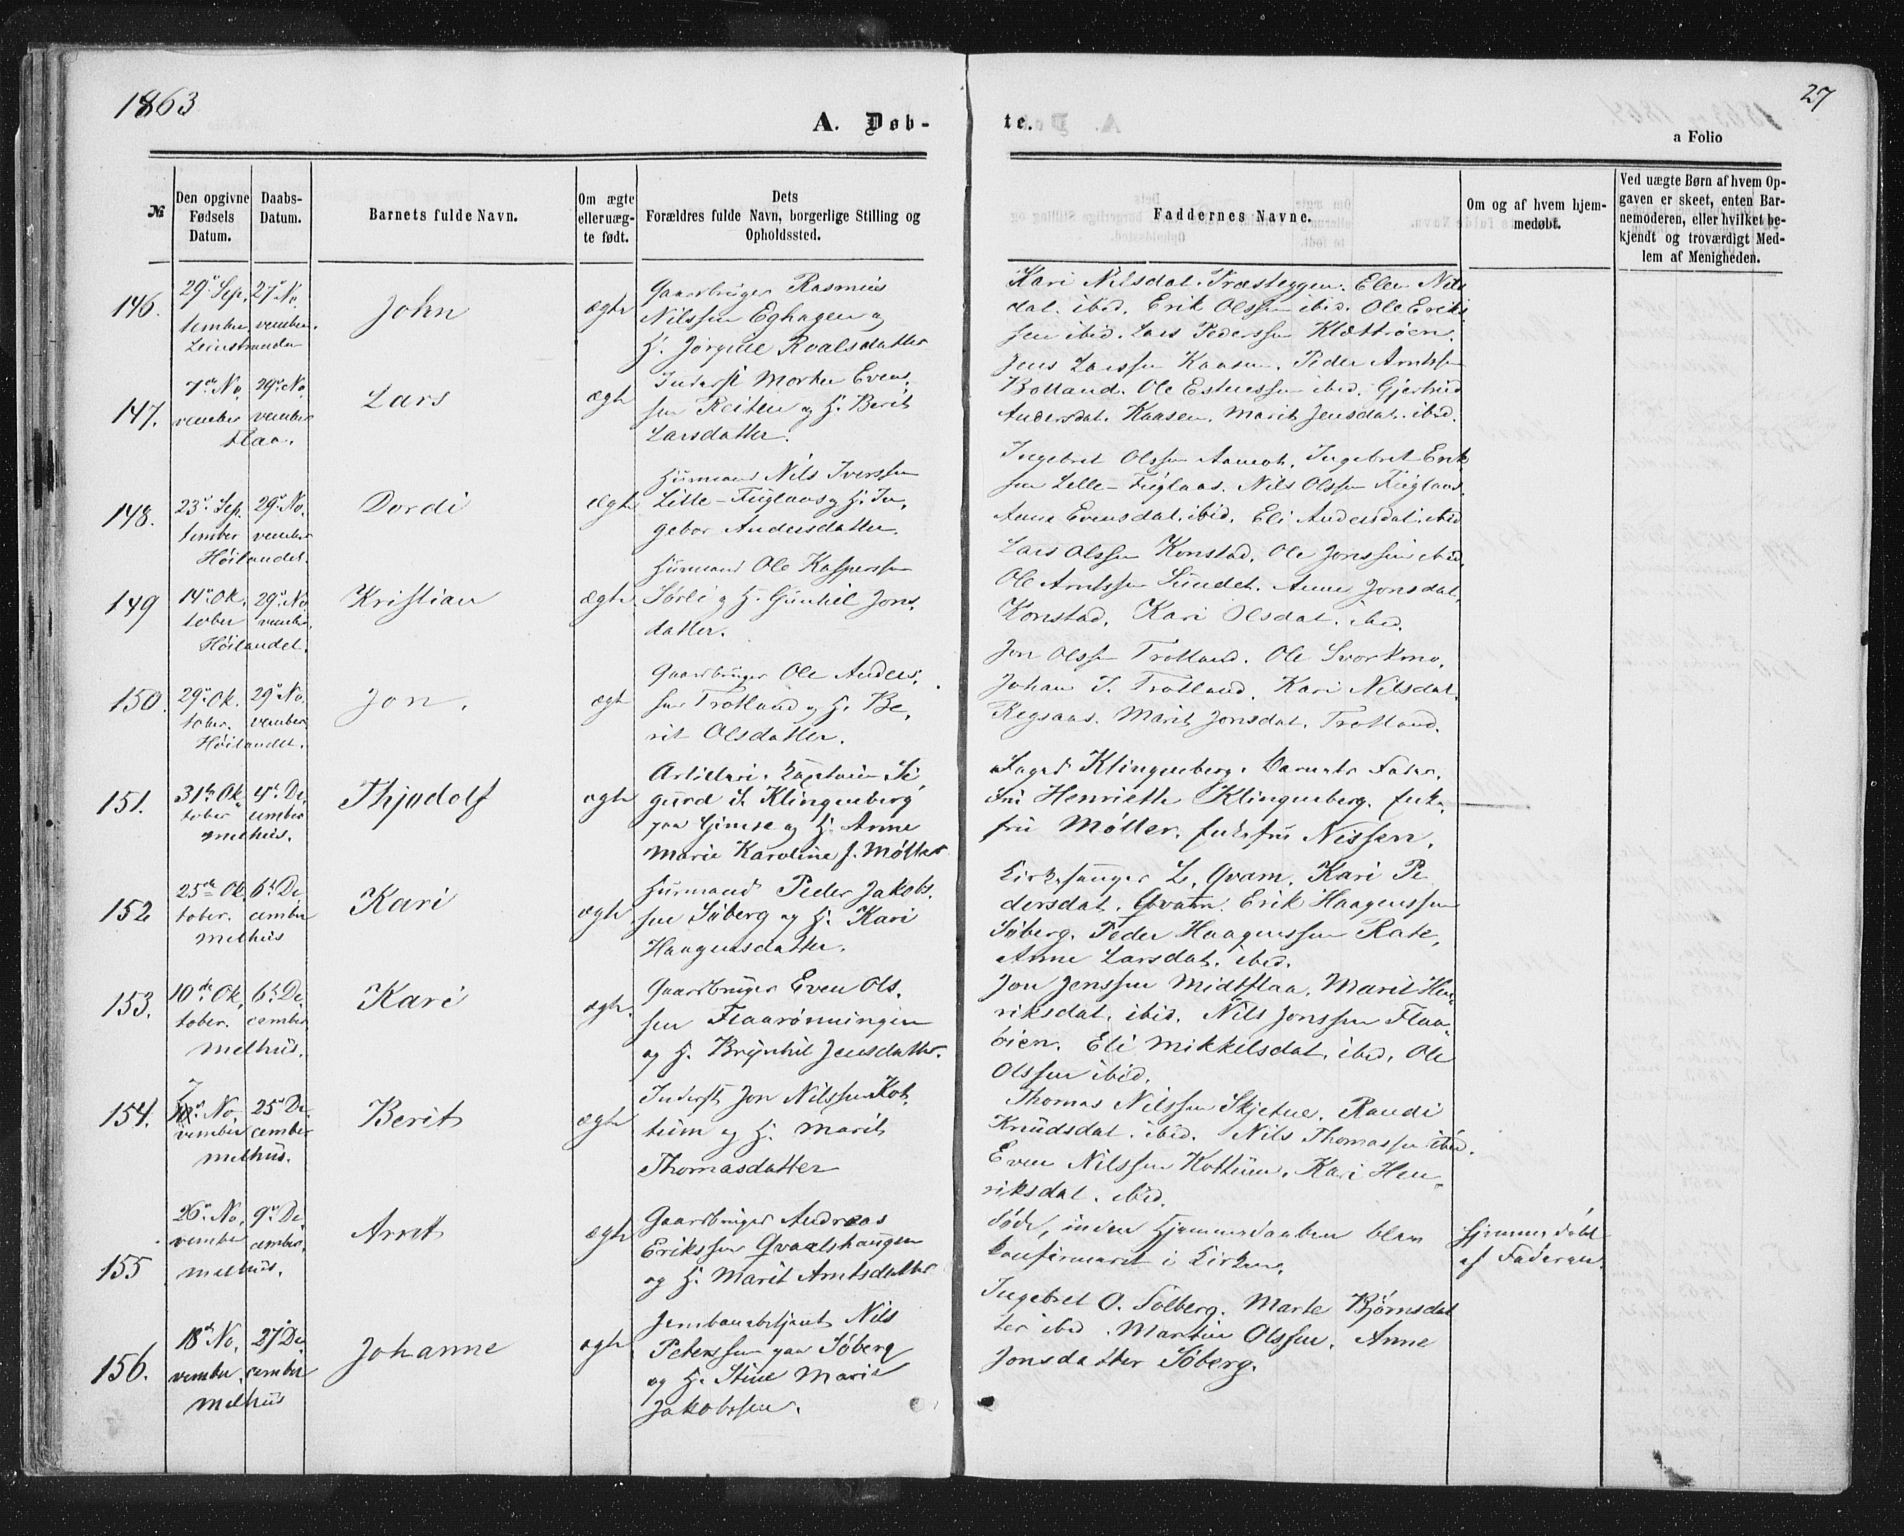 1863
27
A. Døb-
te.
a Folio
№
Den opgivne
Fødsels
Datum.
Daabs-
Datum.
Barnets fulde Navn.
Om ægte
eller uæg-
te født.
Dets
Forældres fulde Navn, borgerlige Stilling og
Opholdssted.
Faddernes Navne.
Om og af hvem hjem-
medøbt.
Ved uægte Børn af hvem Op-
gaven er skeet, enten Bar-
nemoderen, eller hvilket be-
kjendt og troværdigt Med-
lem af Menigheden.
146.
29. Sep,
tember
27 No,
vember.
Leinstranden
John
ægte
Gaardbruger Rasmus
Nilssen Eghagen og
H. Jørgine Roalsdatter
Kari Nilsdat. Præsteggen. Elen Nils
dat. ibid. Erik Olssen ibid. Ole Erik-
sen ibid. Lars Pederssen Klættrøen.
147.
7de No,
vember
29. No,
vember
Flaa.
Lars
ægte
Inderst Morten Evens,
sen Reiten og H. Berit
Larsdatter.
Jens Larssen Kaasen. Peder Arntssen
Bolland. Ole Estenssen ibid. Gjertrud
Andersdat. Kaasen. Marit Jensdat. ibid.
148.
23. Sep.
tember
29. No,
vember
Høilandet.
Dordi
ægte
Husmand Nils Iverssen
Lille-Fuglaas og H. In,
gebor Andersdatter.
Ingebret Olssen Aamot. Ingebret Erik
sen Lille-Fuglaas. Nils Olssen Fuglaas.
Anne Evensdat. ibid. Eli Andersdat. ibid
149
14. Ok,
tober
29. No
vember.
Høilandet.
Kristian
ægte
Husmand Ole Kasperssen
Sørli og H. Gunhil Jons,
datter.
Lars Olssen Konstad. Ole Jonssen ibid.
Ole Arntssen Sundet. Anne Jonsdat,
Konstad. Kari Olsdat. ibid.
150.
29. Ok.
tober.
29. No,
vember
Høilandet.
Jon.
ægte
Gaardbruger Ole Anders,
sen Trotland og H. Be,
rit Olsdatter.
Jon Olssen Trotland. Ole Svorkmo.
Johan J. Trotland. Kari Nilsdat.
Regsaas. Marit Jonsdat. Trotland.
151.
31te Ok,
tober
4de De,
cember
Melhus.
Thjodolf
ægte
Artilleri-Kaptein Si
gurd S. Klingenberg
paa Gimse og H. Anne
Marie Karoline f. Møller
Klingenberg. Barnets Fader.
Fru Henriette Klingenberg.
fru Møller. Nissen.
152
25de Ok,
tober.
6te De,
cember
Melhus
Kari
ægte
Husmand Peder Jakobs.
sen Søberg og H. Kari
Haagensdatter.
Kirkesanger L. Qvam. Kari Pe
dersdat. Qvam. Erik Haagenssen
Søberg. Peder Haagenssen Rate,
Anne Larsdat. ibid.
153.
10de Ok,
tober.
6te De,
cember
Melhus.
Kari
ægte.
Gaardbruger Even Ols.
sen Flaarønningen
og H. Brynhil Jensdatter.
Jon Jenssen Midtflaa. Marit Hen-
riksdat. ibid. Nils Jonssen Flaa,
øien. Eli Mikkelsdat. ibid. Ole
Olssen ibid.
154.
7
No,
vember
25. De,
cember
Melhus.
Berit
ægte
Inderst Jon Nilssen Kot,
tum og H. Marit
Thomasdatter
Thomas Nilssen Skjetne. Randi
Knudsdat. ibid. Nils Thomassen ibid.
Even Nilssen Kottum. Kari Hen-
riksdat. ibid.
155
26. No,
vember
9. De,
cember.
Melhus.
Arnt
ægte
Gaardbruger Andreas
Erikssen Qvaalshaugen
og H. Marit Arntsdatter
Døde, inden Hjemmedaaben blev
konfirmeret i Kirken.
Hjemmedøbt
af Faderen.
156.
18de No,
vember.
27. De,
cember
Melhus
Johanne
ægte
Jernbanebetjent Nils
Peterssen paa Søberg
og H. Stine Marie
Jakobssen.
Ingebret O. Solberg. Marte Bjørnsdat
ter ibid. Martin Olssen. Anne
Jonsdatter Søberg.